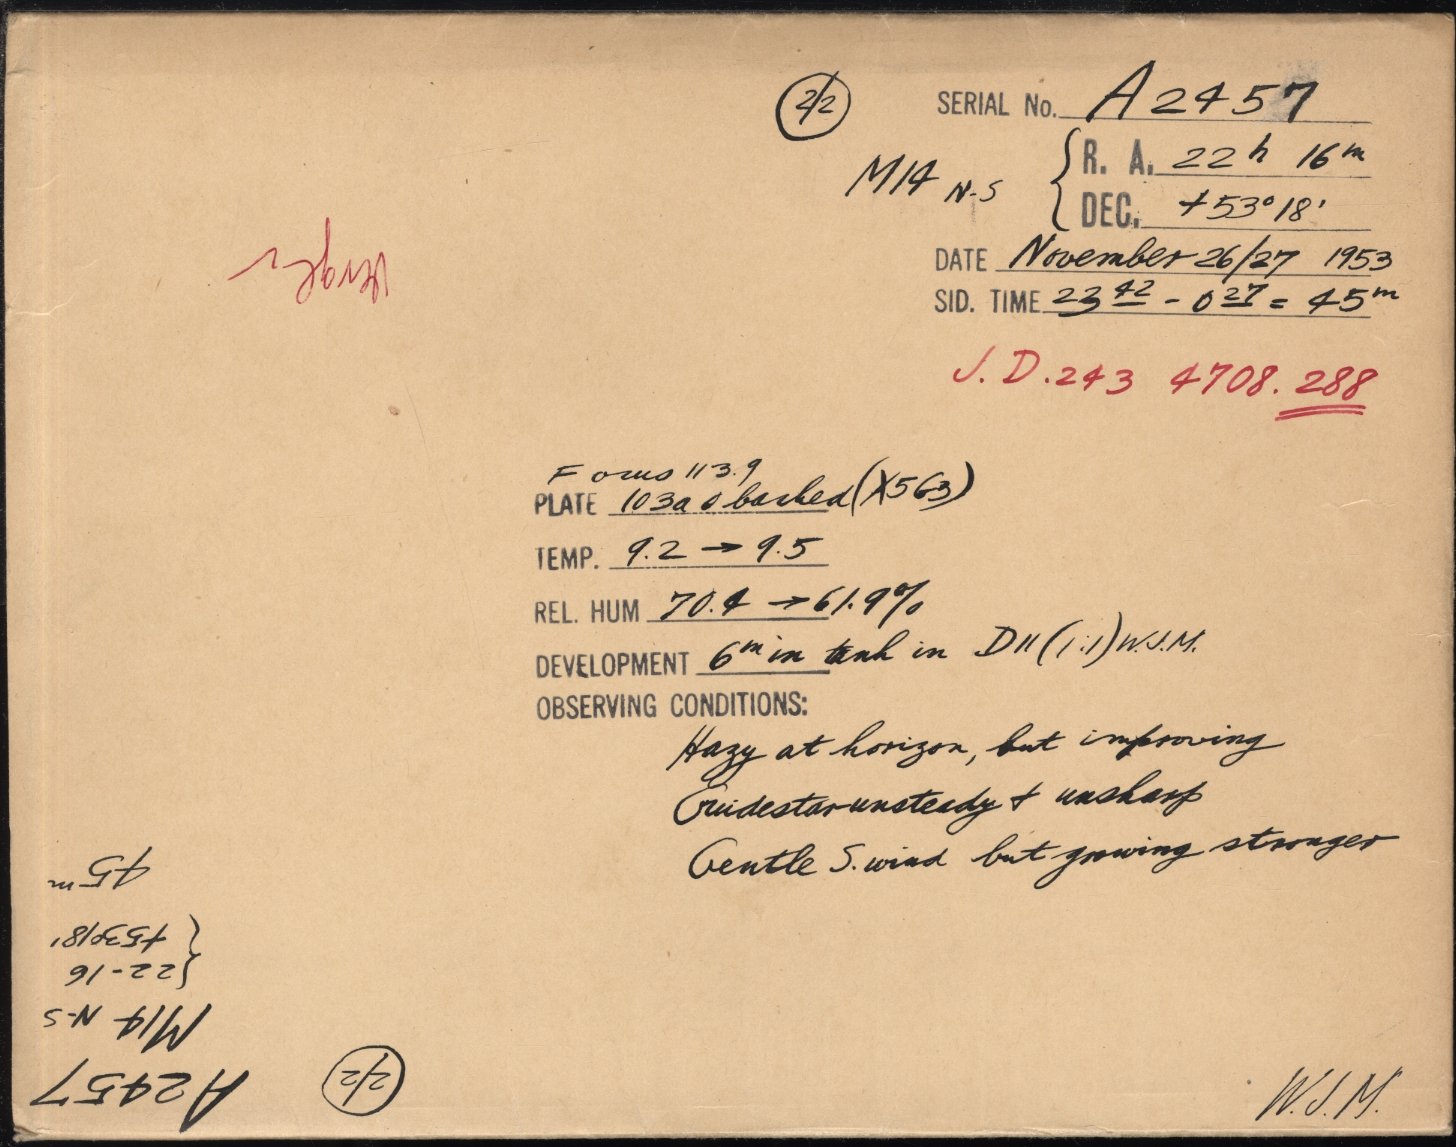 2/2
SERIAL No. A2457
M14 N-S
R. A. 22h 16m
DEC. +53° 18'
DATE November 26/27 1953
SID. TIME 23 42 - 0 27 = 45m
J. D. 243 4708.288
Focus 113.9
PLATE 103a o backed (X563)
TEMP. 9.2 → 9.5
REL. HUM 70.4 → 61.9%
DEVELOPMENT 6m in tank in D11 (1:1) W.J.M.
OBSERVING CONDITIONS:
Hazy at horizon, but improving
Guidestar unsteady & unsharp
Gentle S. wind but growing stronger
W.J.M.
2/2
A2457
M14 N-S
22-16
+53°18'
45m